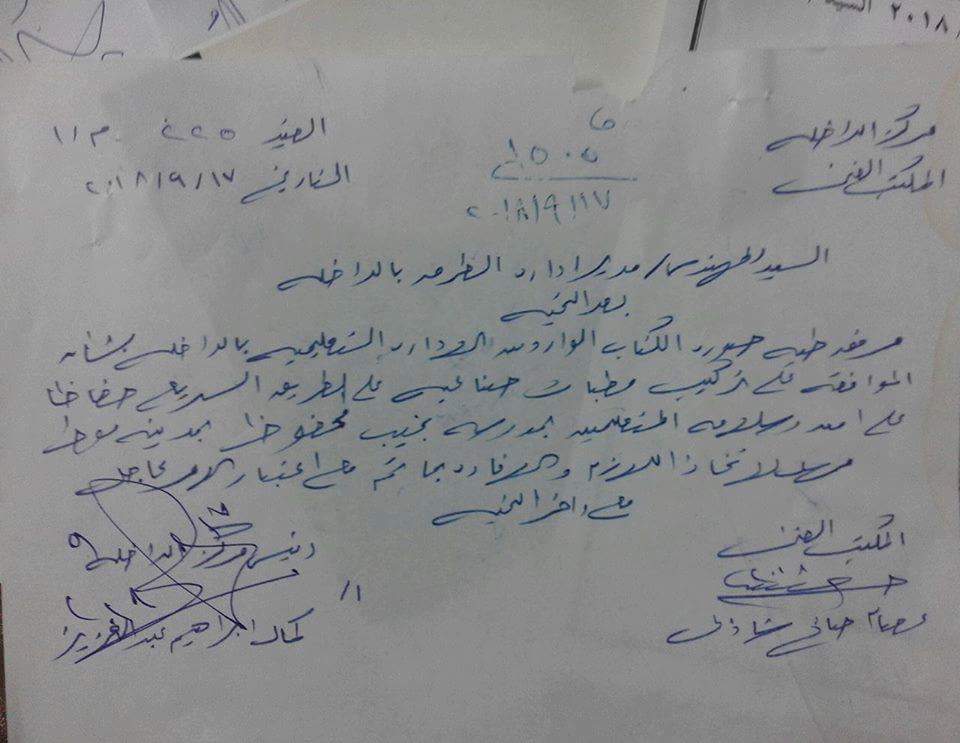 ٢٠١٨
مركز الداخله
المكتب الفنى
١٥٠٥
٢٠١٨/٩/١٧
القيد ٢٢٥ م ١١
التاريخ ٢٠١٨/٩/١٧
السيد المهندس / مدير ادارة الطرق بالداخله
بعد التحيه
مرفق طيه صورة الكتاب الوارد من الادارة التعليميه بالداخله بشأن
الموافقه على تركيب مطبات صناعيه على الطريق السريع حفاظا
على امن وسلامه المتعلمين بمدرسة نجيب محفوظ بمدينه موط
برجاء لاتخاذ اللازم والافاده بما يتم مع اعتبار الامر عاجل
مع وافر التحيه
المكتب الفنى
عصام صافى شاذلى
رئيس مركز الداخله
ا/
كمال ابراهيم عبد العزيز